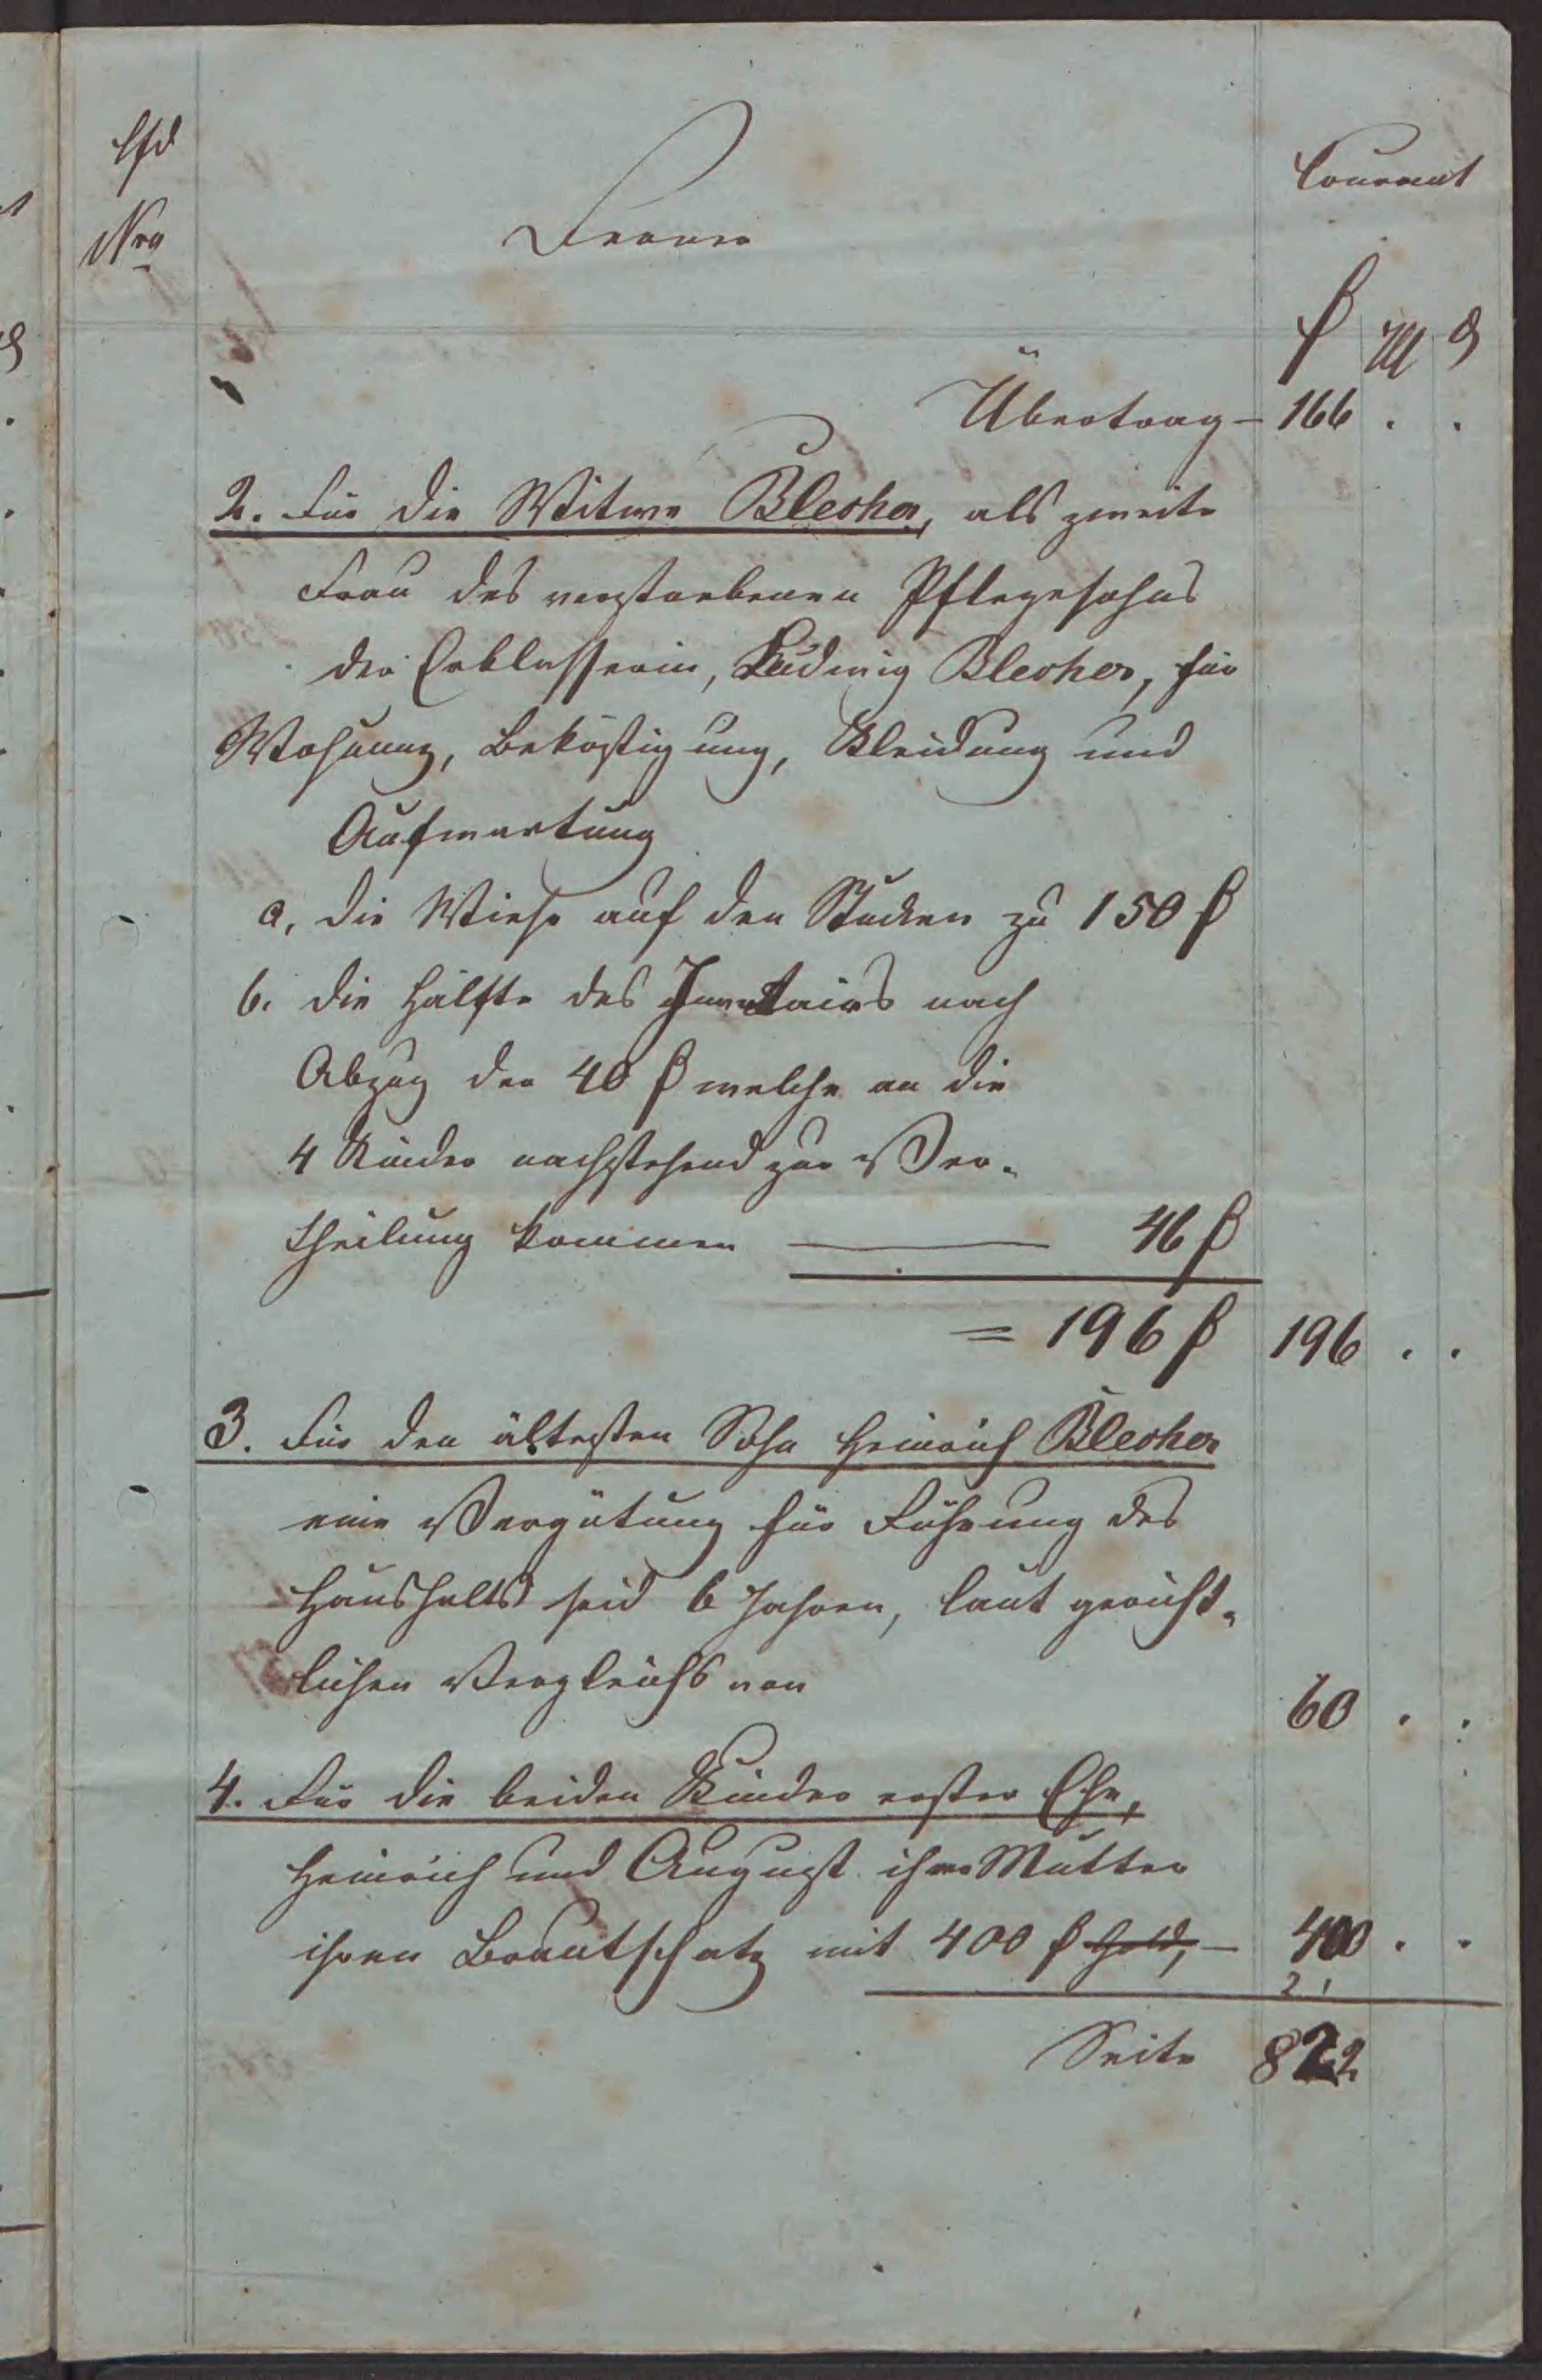 lfd
Nro
Ferner
Courant
₰ M ₰
Übertrag – 166 . .
2. Für die Witwe Blecher, als zweite
Frau des verstorbenen Pflegesohns
der Erblasserin, Ludwig Blecher, für
Wohnung, Beköstigung, Kleidung und
Aufwartung
a, die Wiese auf den Stucken zu 150 ₰
b. die Hälfte des Inventairs nach
Abzug der 40 ₰ welche an die
4 Kinder nachstehend zur Ver-
theilung kommen — 46 ₰
= 196 ₰ 196 . .
3. Für den ältesten Sohn Heinrich Blecher
eine Vergütung für Führung des
Haushalts seid 6 Jahren, laut gericht-
lichen Vergleichs von
60 . .
4. Für die beiden Kinder erster Ehe,
Heinrich und August ihre Mutter
ihren Brautschatz mit 400 ₰ Gold, – 400 . .
2 1
Seite 822